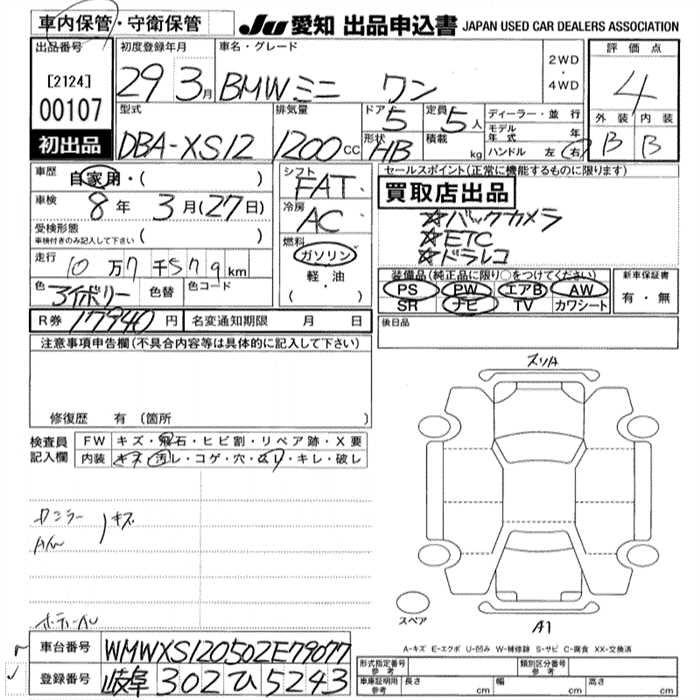 車内保管・守衛保管 JU 愛知 出品申込書 JAPAN USED CAR DEALERS ASSOCIATION
出品番号 初度登録年月 車名・グレード 2WD ・ 4WD 評価点
[2124] 29 3月 BMWミニ ワン 4
00107 型式 排気量 ドア 5 定員 5人 ディーラー・並行 外装 内装
初出品 DBA-XS12 1200cc 形状 HB 積載 kg モデル年式 年 B B
ハンドル 左 右
車歴 自家用・( ) シフト FAT セールスポイント(正常に機能するものに限ります)
車検 8年 3月(27日) 冷房 AC 買取店出品
☆バックカメラ
受検形態 車検付きのみ記入して下さい ( ) 燃料 ☆ETC
ガソリン ☆ドラレコ
走行 10万7千579km 軽・油 装備品(純正品に限り○をつけてください) 新車保証書
色 アイボリー 色替 色コード ( ・ ) PS PW エアB AW 有・無
SR ナビ TV カワシート
R券 17940円 名変通知期限 月 日 後日品
注意事項申告欄(不具合内容等は具体的に記入して下さい)
修復歴 有 (箇所 )
検査員記入欄 FW キズ・飛石・ヒビ割・リペア跡・X要
内装 キズ・汚レ・コゲ・穴・ムレ・キレ・破レ
スリA
キズ
スペア A1
A-キズ E-エクボ U-凹み W-補修跡 S-サビ C-腐食 XX-交換済
車台番号 WMWXS120502E79077 形式指定番号 参考 類別区分番号 参考
登録番号 岐阜 302 ひ 5243 車庫証明用 参考 長さ cm 幅 cm 高さ cm